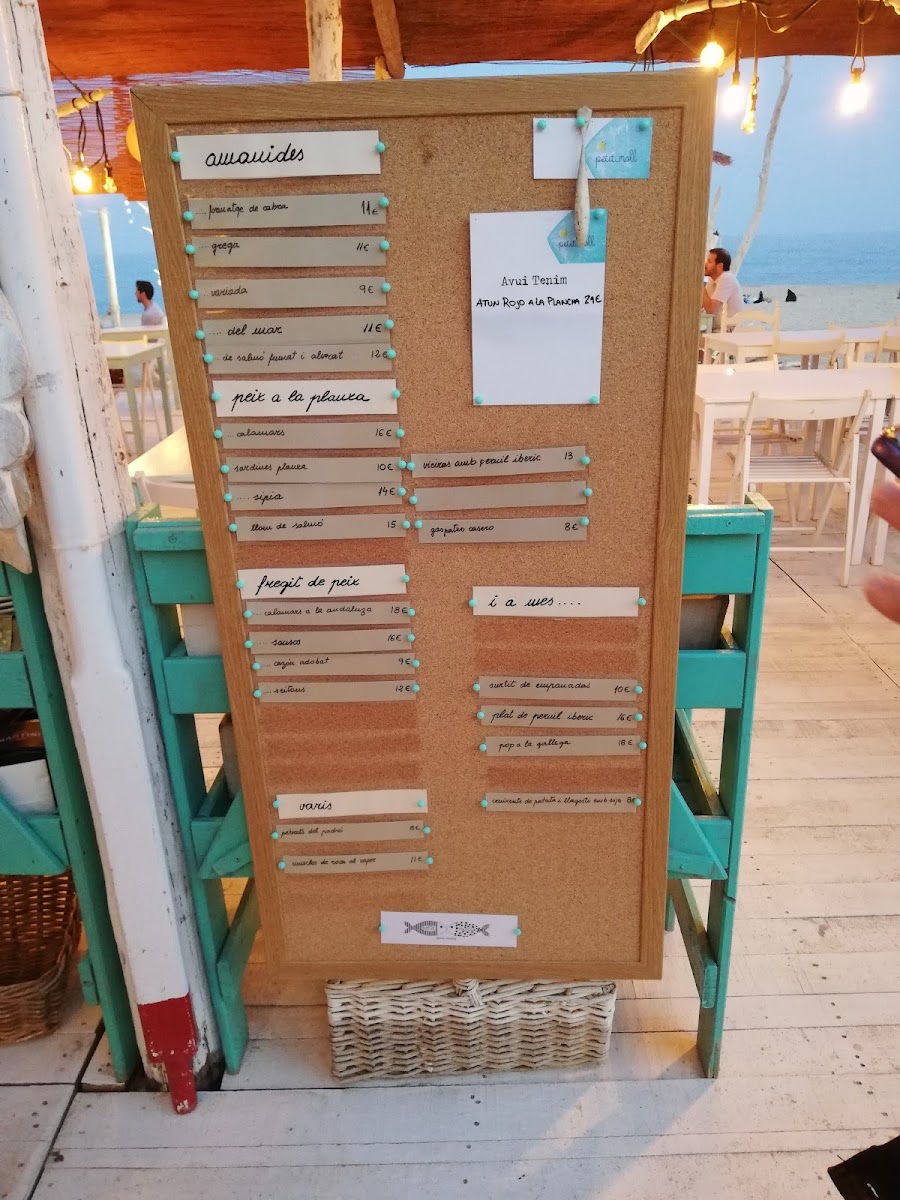 amanides
.... formatge de cabra 11€
.... grega 11€
.... variada 9€
.... del mar 11€
.. de salmó fumat i alvocat 12€
peix a la planxa
... calamars 16€
sardines planxa 10€
.... sípia 14€
llom de salmó 15
fregit de peix
... calamars a la andaluza 18€
.... sonsos 16€
... cazón adobat 9€
... seitons 12€
varis
pebrots del padró 8€
musclos de roca al vapor 11€
petit moll
petit moll
Avui Tenim
ATUN ROJO A LA PLANCHA 24€
vieires amb pernil ibèric 13
gaspatxo casero 8€
i a mes ....
surtit de empanades 10€
plat de pernil ibèric 16€
pop a la gallega 18€
cruixents de patata i llagostí amb soja 8€